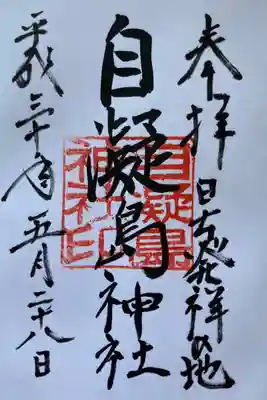 奉拝
日本発祥の地
自凝島神社
自凝島神社印
平成三十年五月二十八日